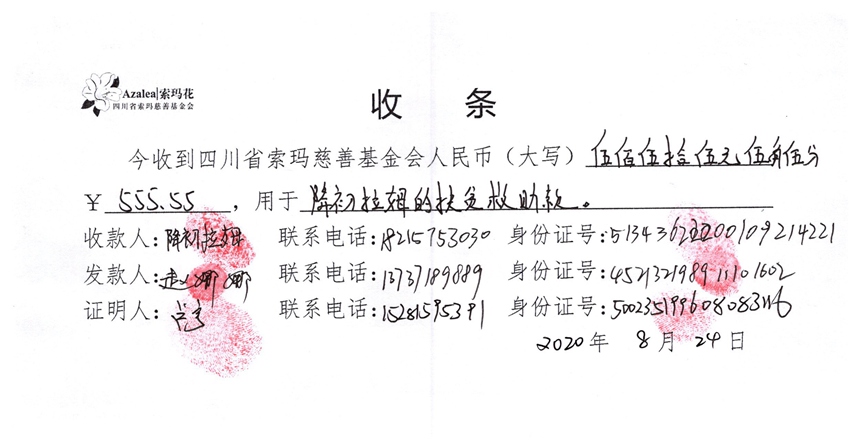 Azalea|索玛花
四川省索玛慈善基金会
收 条
今收到四川省索玛慈善基金会人民币（大写）伍佰伍拾伍元伍角伍分
¥ 555.55 ，用于降初拉姆的扶贫救助款。
收款人：降初拉姆 联系电话：18215753030 身份证号：
发款人：娜娜 联系电话：13737189889 身份证号：
证明人： 联系电话：15281595391 身份证号：
2020年 8月 24日